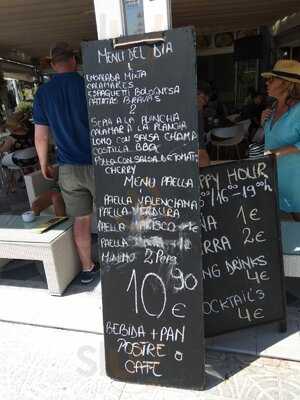 MENU DEL DIA
1
ENSALADA MIXTA
CALAMARES
ESPAGUETTI BOLOGNESA
PATATAS BRAVAS
2
SEPIA A LA PLANCHA
CALAMAR A LA PLANCHA
LOMO CON SALSA CHAMP
COSTILLA BBQ
POLLO CON SALSA DE TOMATE
CHERRY
MENU PAELLA
PAELLA VALENCIANA
PAELLA VERDURA
PAELLA MARISCO
PAELLA MIXTA
MINIMO 2 PERS
10'90 €
BEBIDA + PAN
POSTRE ó
CAFE
PPY HOUR
16:00-19:00h
1€
RRA 2€
NG DRINKS
4€
OCKTAIL'S
4€